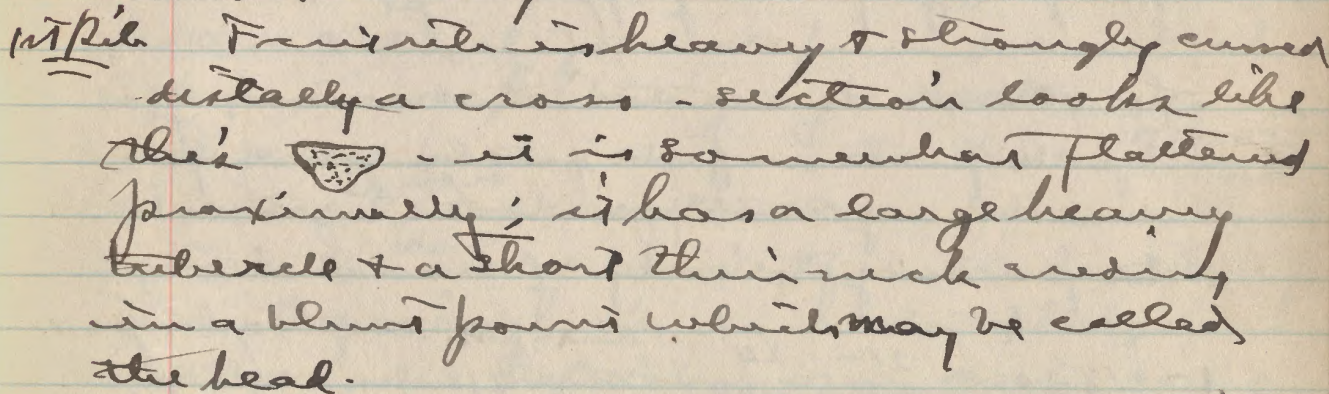 1st Rib First rib is heavy & strongly curved
distally a cross-section looks like
this - it is somewhat flattened
proximally; it has a large heavy
tubercle & a short thin neck ending
in a blunt point which may be called
the head.